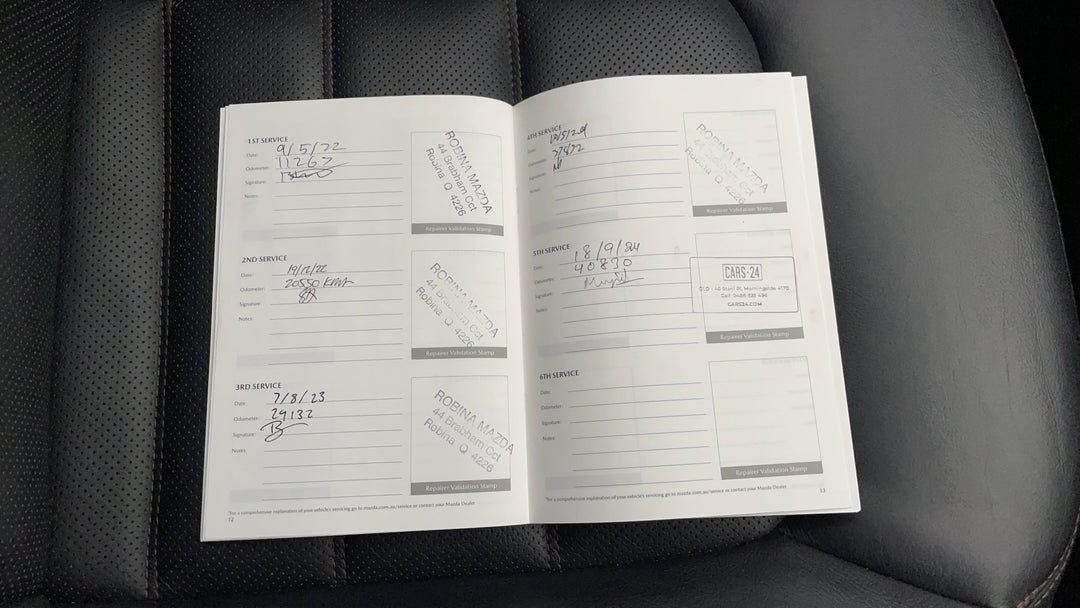 1ST SERVICE
Date: 9/5/22
Odometer: 11267
Signature:
Notes:
ROBINA MAZDA
44 Brabham Cct
Robina Q 4226
Repairer Validation Stamp
2ND SERVICE
Date: 19/12/22
Odometer: 20550 KMS
Signature:
Notes:
ROBINA MAZDA
44 Brabham Cct
Robina Q 4226
Repairer Validation Stamp
3RD SERVICE
Date: 7/8/23
Odometer: 29132
Signature:
Notes:
ROBINA MAZDA
44 Brabham Cct
Robina Q 4226
Repairer Validation Stamp
*For a comprehensive explanation of your vehicle's servicing go to mazda.com.au/service or contact your Mazda Dealer
12
4TH SERVICE
Date:
Odometer:
Signature:
Notes:
ROBINA MAZDA
44 Brabham Cct
Robina Q 4226
Repairer Validation Stamp
5TH SERVICE
Date: 18/9/24
Odometer: 40830
Signature:
Notes:
CARS·24
QLD : 40 Pl, Morningside 4170
Call:
CARS24.COM
Repairer Validation Stamp
6TH SERVICE
Date:
Odometer:
Signature:
Notes:
Repairer Validation Stamp
*For a comprehensive explanation of your vehicle's servicing go to mazda.com.au/service or contact your Mazda Dealer
13